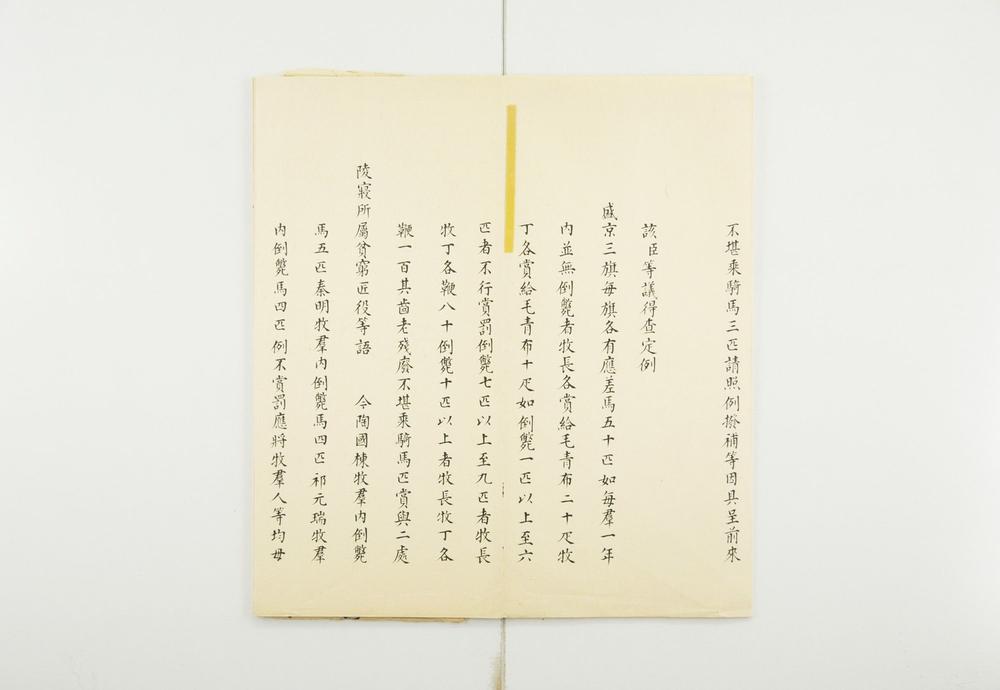 不堪乘騎馬三匹請照例撥補等因具呈前來
該臣等議得查定例
盛京三旗每旗各有應差馬五十匹如每羣一年
內並無倒斃者牧長各賞給毛青布二十疋牧
丁各賞給毛青布十疋如倒斃一匹以上至六
匹者不行賞罰倒斃七匹以上至九匹者牧長
牧丁各鞭八十倒斃十匹以上者牧長牧丁各
鞭一百其齒老殘廢不堪乘騎馬匹賞與二處
陵寢所屬貧窮匠役等語　今陶國棟牧羣內倒斃
馬五匹秦明牧羣內倒斃馬四匹祁元瑞牧羣
內倒斃馬四匹例不賞罰應將牧羣人等均毋